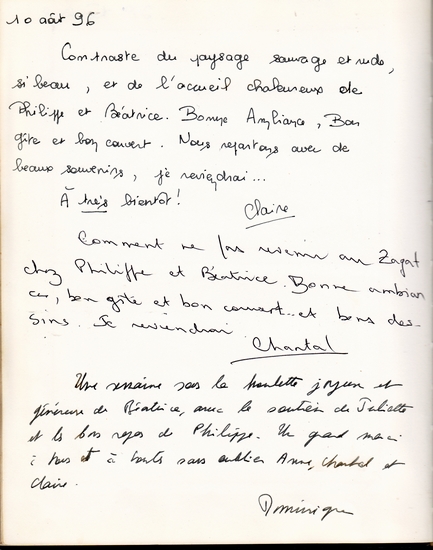 10 août 96
Contraste du paysage sauvage et rude,
si beau, et de l'accueil chaleureux de
Philippe et Béatrice. Bonne Ambiance, Bon
gîte et bon couvert. Nous repartons avec de
beaux souvenirs, je reviendrai...
À très bientôt!
Claire
Comment ne pas revenir au Zagat
chez Philippe et Béatrice. Bonne ambian
ce, bon gîte et bon couvert... et bons des-
sins. Je reviendrai
Chantal
Une semaine sous la houlette joyeuse et
généreuse de Béatrice, avec le soutien de Juliette
et les bons repas de Philippe. Un grand merci
à tous et à toutes sans oublier Anne, Chantal et
Claire.
Dominique